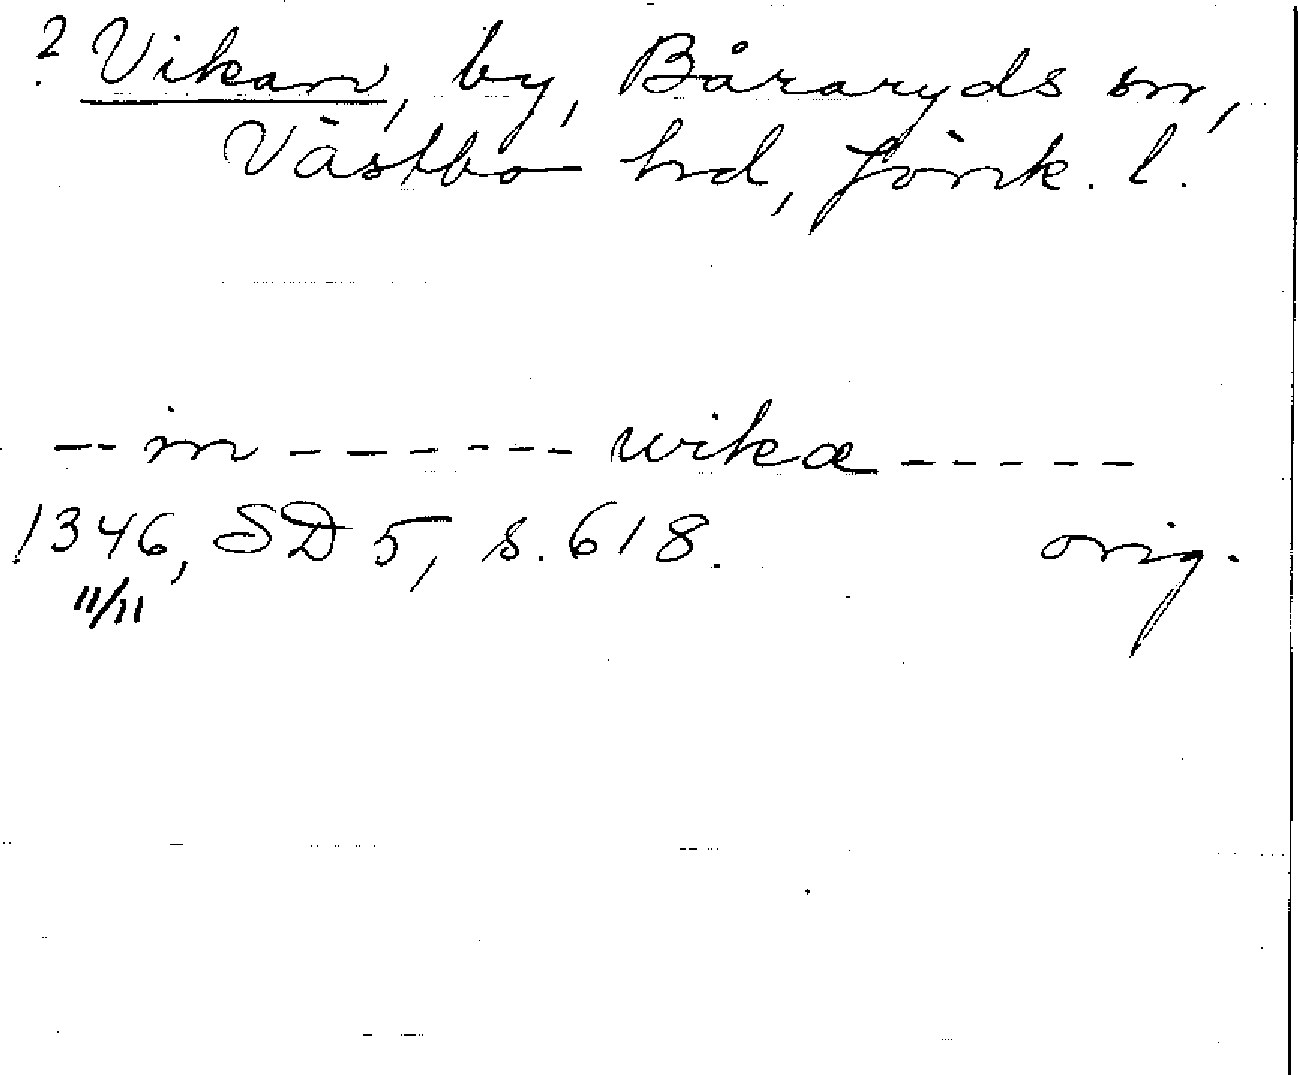 ? Vikan, by, Båraryds sn,
Västbo hd, Jönk. l.
- -- in - - - - - - wikæ - - - - -
1346, SD 5, s. 618. orig.
11/11